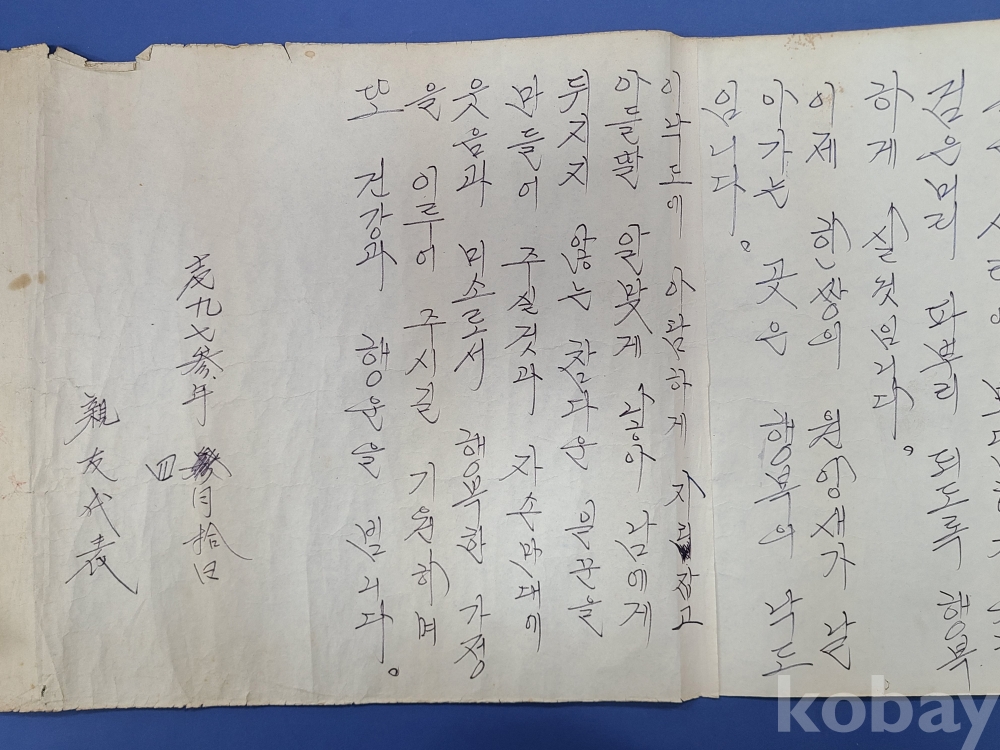 검은머리 파뿌리 되도록 행복
하게 실것입니다.
이제 한쌍의 원앙새가 날
아가는 곳은 행복의 낙도
입니다.
이낙도에 아담하게 자리잡고
아들딸 알맞게 낳아 남에게
뒤지지 않는 참다운 일꾼을
만들어 주실것과 자손만대에
웃음과 미소로서 행복한 가정
을 이루어 주시길 기원하며
또 건강과 행운을 빕니다.
壹九七參年 四月拾日
親友代表
kobay